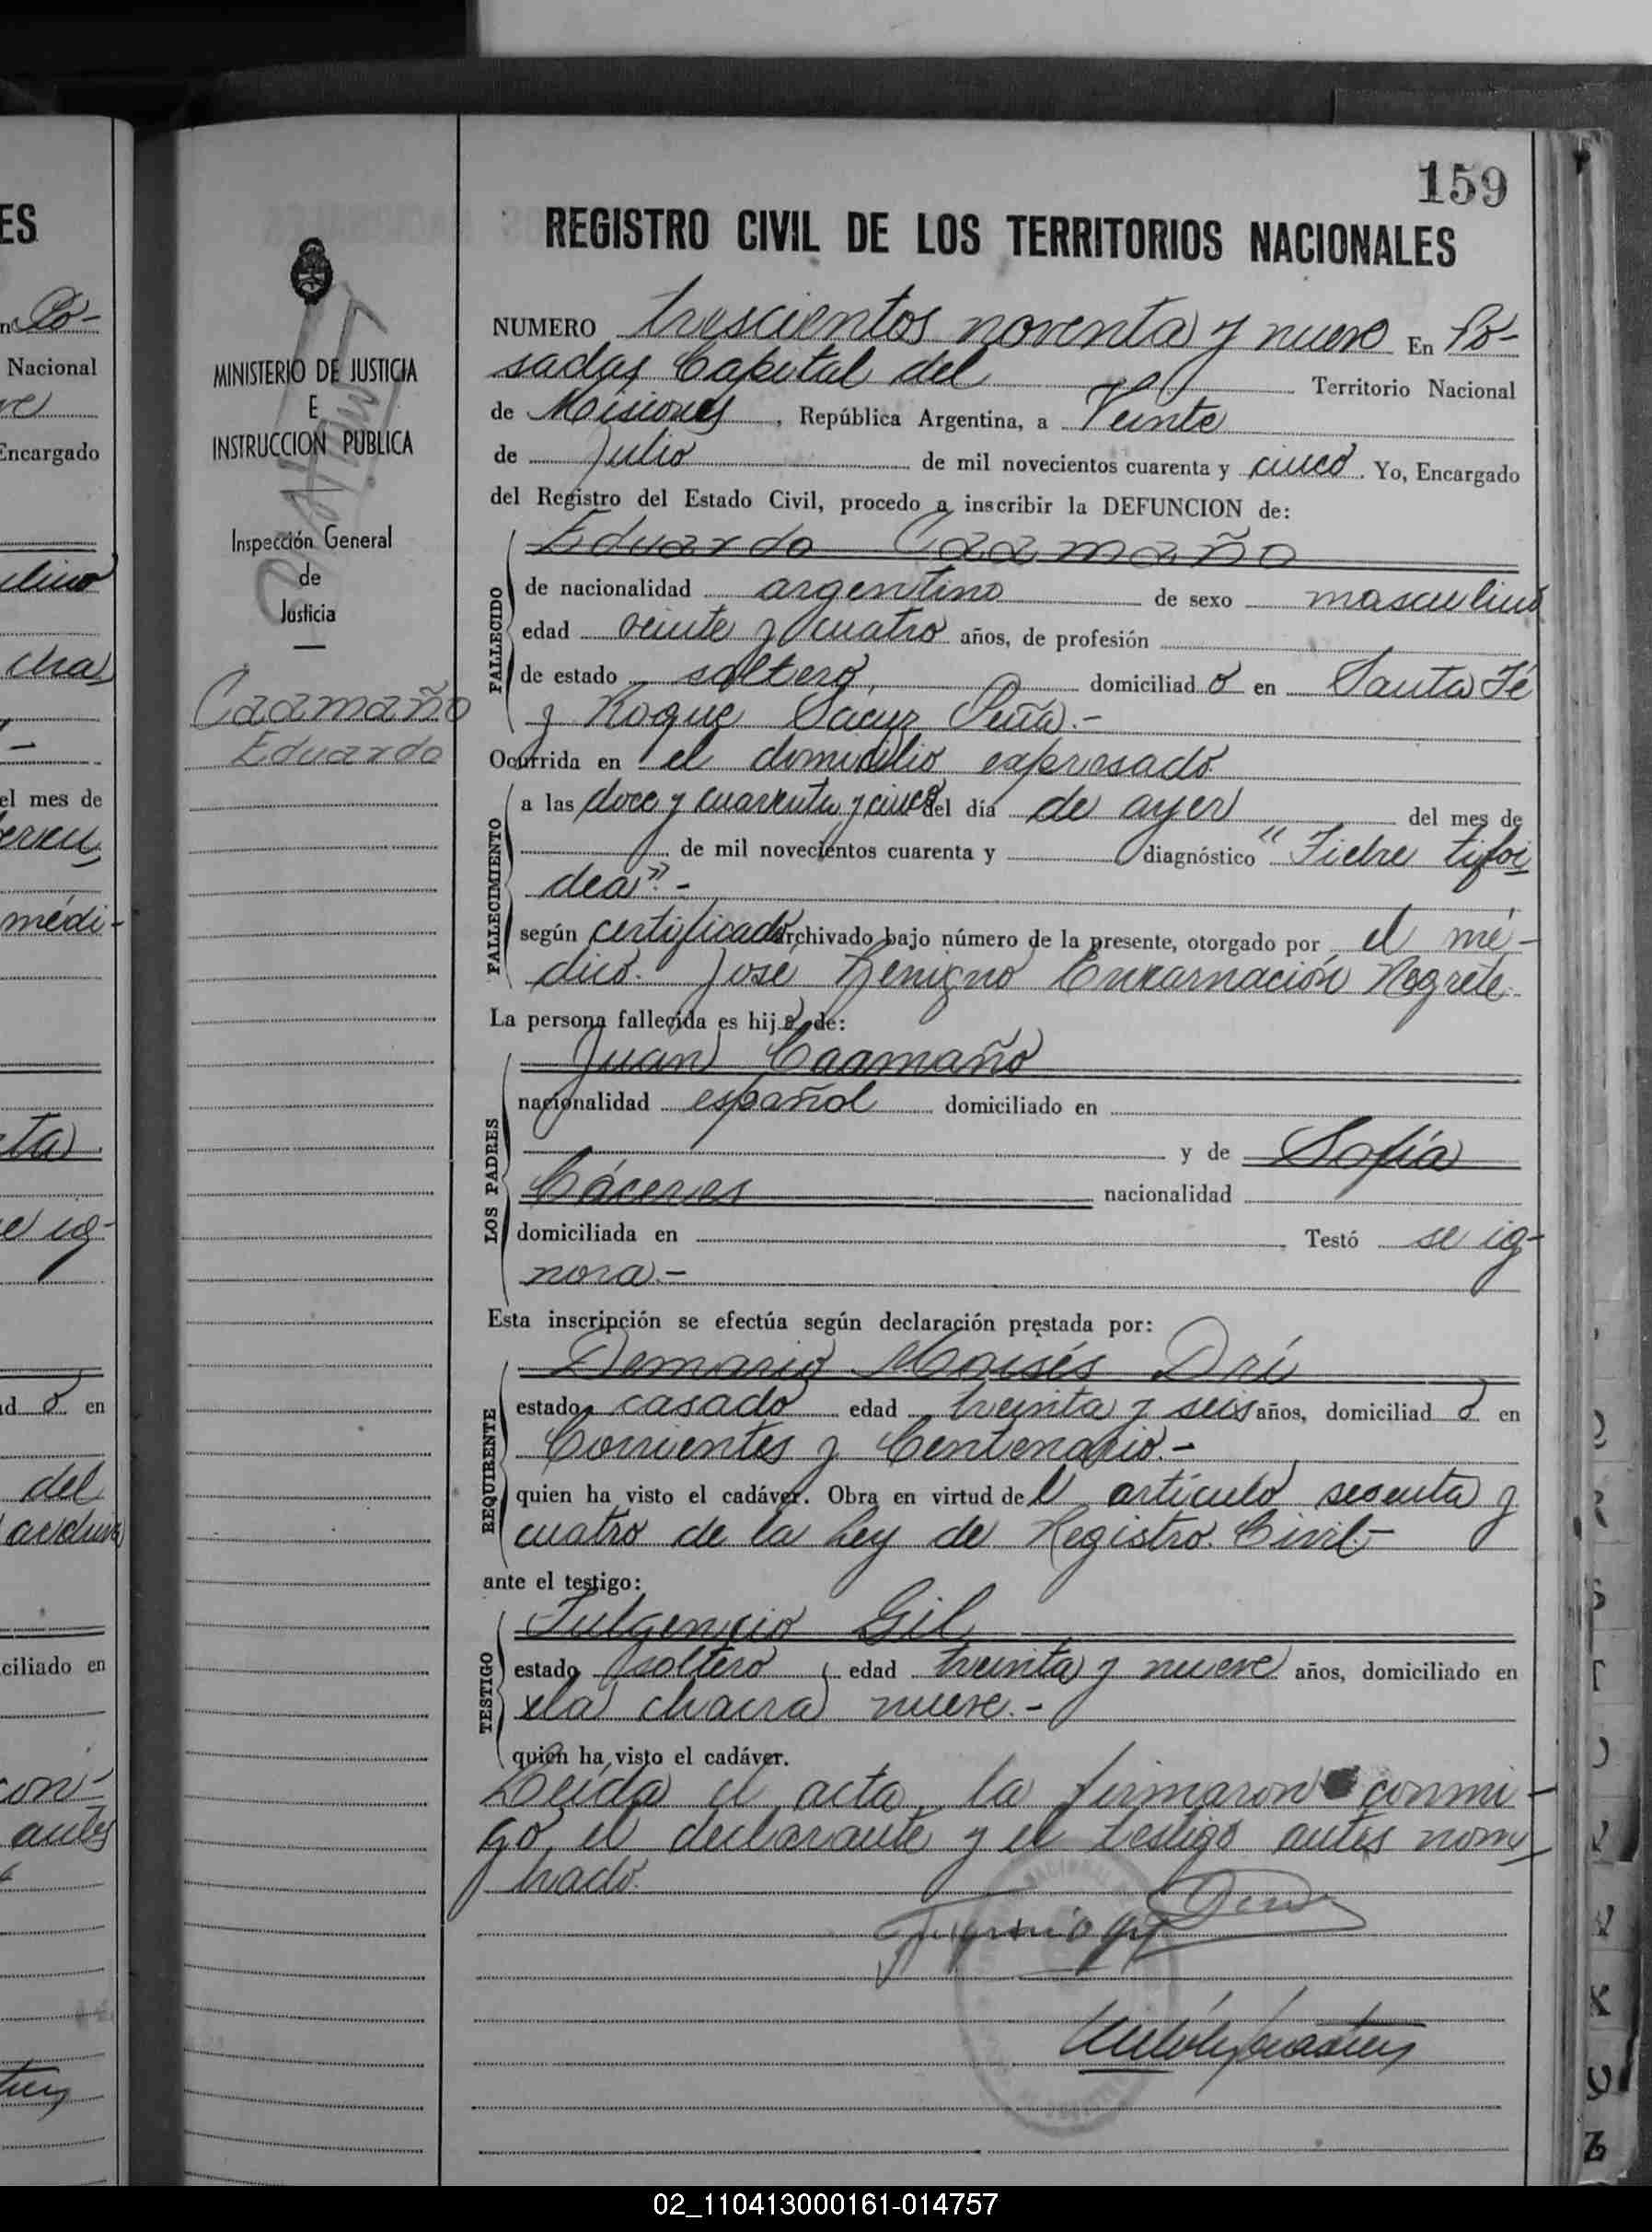 159
REGISTRO CIVIL DE LOS TERRITORIOS NACIONALES
MINISTERIO DE JUSTICIA
E
INSTRUCCION PUBLICA
Inspección General
de
Justicia
Caamaño
Eduardo
NUMERO trescientos noventa y nueve En Po-
sadas Capital del Territorio Nacional
de Misiones, República Argentina, a Veinte
de Julio de mil novecientos cuarenta y cinco. Yo, Encargado
del Registro del Estado Civil, procedo a inscribir la DEFUNCION de:
FALLECIDO
Eduardo Caamaño
de nacionalidad argentino de sexo masculino
edad veinte y cuatro años, de profesión
de estado soltero, domiciliado en Santa Fé
y Roque Saenz Peña.-
Ocurrida en el domicilio expresado
FALLECIMIENTO
a las doce y cuarenta y cinco del día de ayer del mes de
de mil novecientos cuarenta y diagnóstico "Fiebre tifoi
dea".-
según certificado archivado bajo número de la presente, otorgado por el mé-
dico José Benigno Encarnación Negrete.
La persona fallecida es hijo de:
LOS PADRES
Juan Caamaño
nacionalidad español domiciliado en
y de Sofía
Cáceres nacionalidad
domiciliada en Testó se ig-
nora.-
Esta inscripción se efectúa según declaración prestada por:
REQUIRENTE
Moisés Dri
estado casado edad treinta y seis años, domiciliado en
Corrientes y Centenario.-
quien ha visto el cadáver. Obra en virtud del artículo sesenta y
cuatro de la Ley de Registro Civil.-
ante el testigo:
TESTIGO
Fulgencio Gil
estado soltero, edad treinta y nueve años, domiciliado en
la chacra nueve.-
quien ha visto el cadáver.
Leída el acta, la firmaron conmi-
go, el declarante y el testigo antes nom
brado.
ES
n Po-
Nacional
Encargado
el mes de
médi-
e ig-
ad o en
del
ciliado en
antes
02_110413000161-014757